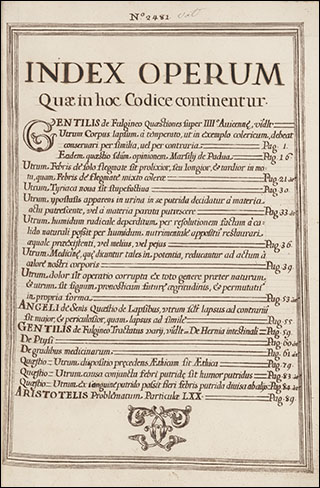 N.º 2482
INDEX OPERUM
Quæ in hoc Codice continentur.
GENTILIS de Fulgineo Quæstiones super IIII Auicennę, vidlt
Utrum Corpus lapsum à temperato, ut in exemplo colericum, debeat
conseruari per similia, uel per contraria. Pag. 1.
Eadem quæstio sdũm opinionem Marsilij de Padua. Pag. 16
Utrum Febris de solo flegmate sit prolixior, seu longior, & tardior in mo-
tu, quam Febris de flegmate mixto colere. Pag. 21
Utrum, Tyriaca noua sit stupefactiua. Pag. 30
Utrum ypostasis apparens in urina in se putrida decidatur à materia
actu putrescente, vel à materia parata putrescere. Pag. 33
Utrum, humidum radicale deperditum, per resolutionem factam à ca-
lido naturali possit per humidum nutrimentale appositũ restaurari
æquale præexistenti, vel melius, vel peius. Pag. 36.
Utrum, Medicinę, quę dicuntur tales in potentia, reducantur ad actum à
calore nostri corporis Pag. 39
Utrum, dolor sit operatio corrupta ex toto genere præter naturam,
& utrum sit signum pronosticum futurę ęgritudinis, & permutatis
in propria forma. Pag. 53
ANGELI de Senis Quæstio de Lapsibus, vtrum scilt lapsus ad contrariũ
sit maior, & periculosior, quam lapsus ad simile Pag. 55
GENTILIS de Fulgineo Tractatus varij, vidlt De Hernia intestinali Pag. 59.
De Ptysi Pag. 60.
De gradibus medicinarum. Pag. 61
Quæstio Utrum dispositio pręcedens Æthicam sit Æthica Pag. 79
Quæstio Utrum causa coniuncta febri putridę sit humor putridus Pag. 83
Quæstio Utrum ex sanguine putrido possit fieri febris putrida diuisa ab alijs Pag. 84
ARISTOTELIS Problematum Particulæ LXX. Pag. 89